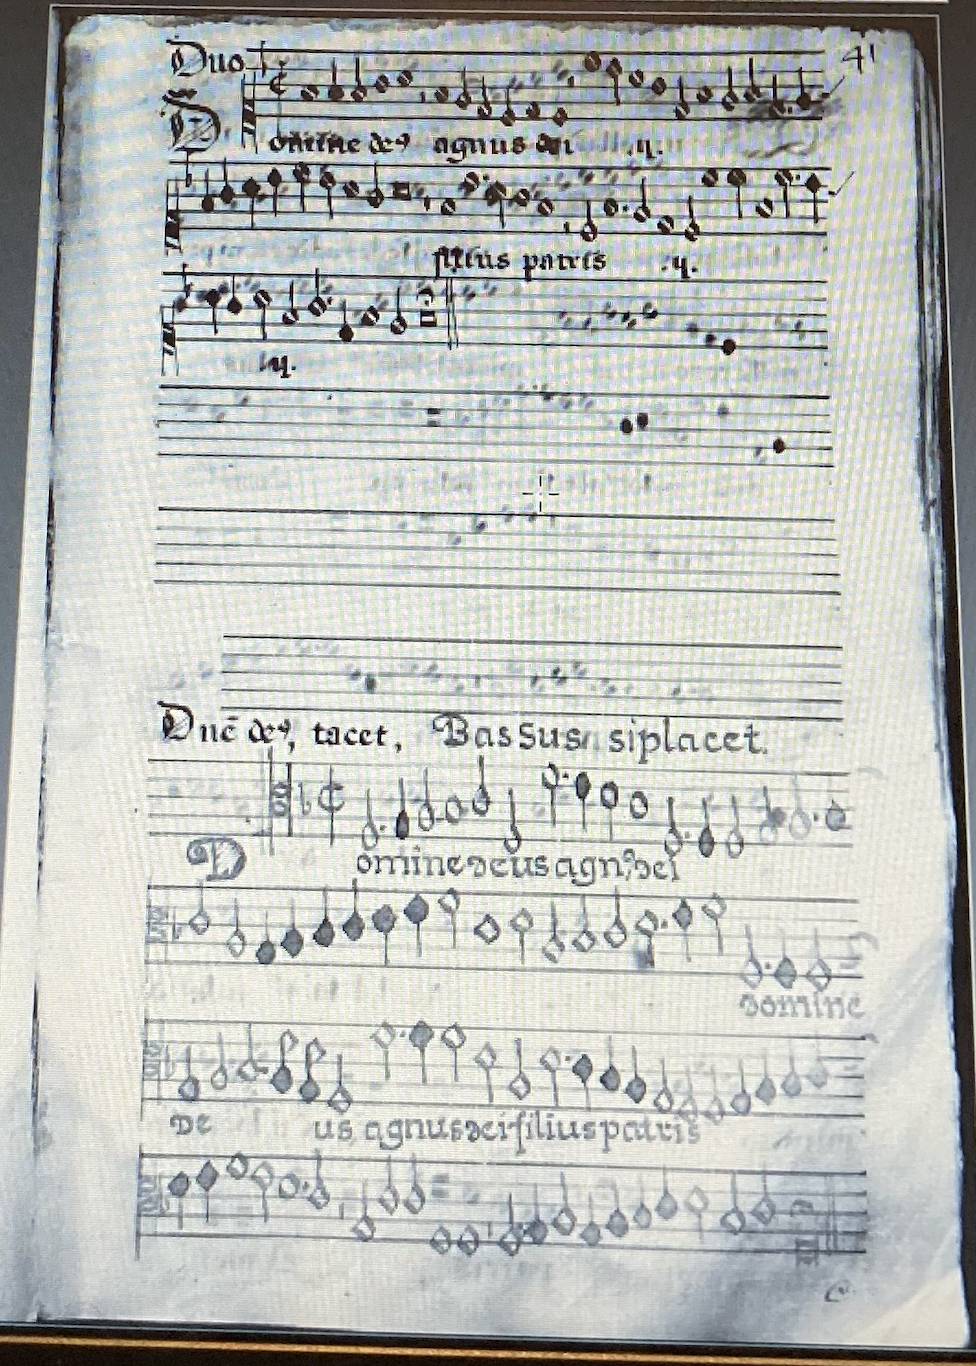 Duo 41
Domine de⁹ agnus dei .ij.
filius patris .ij.
.ij.
Dn̄e de⁹, tacet, Bassus siplacet.
Domine deus agn⁹ dei
domine
de us agnus dei filius patris